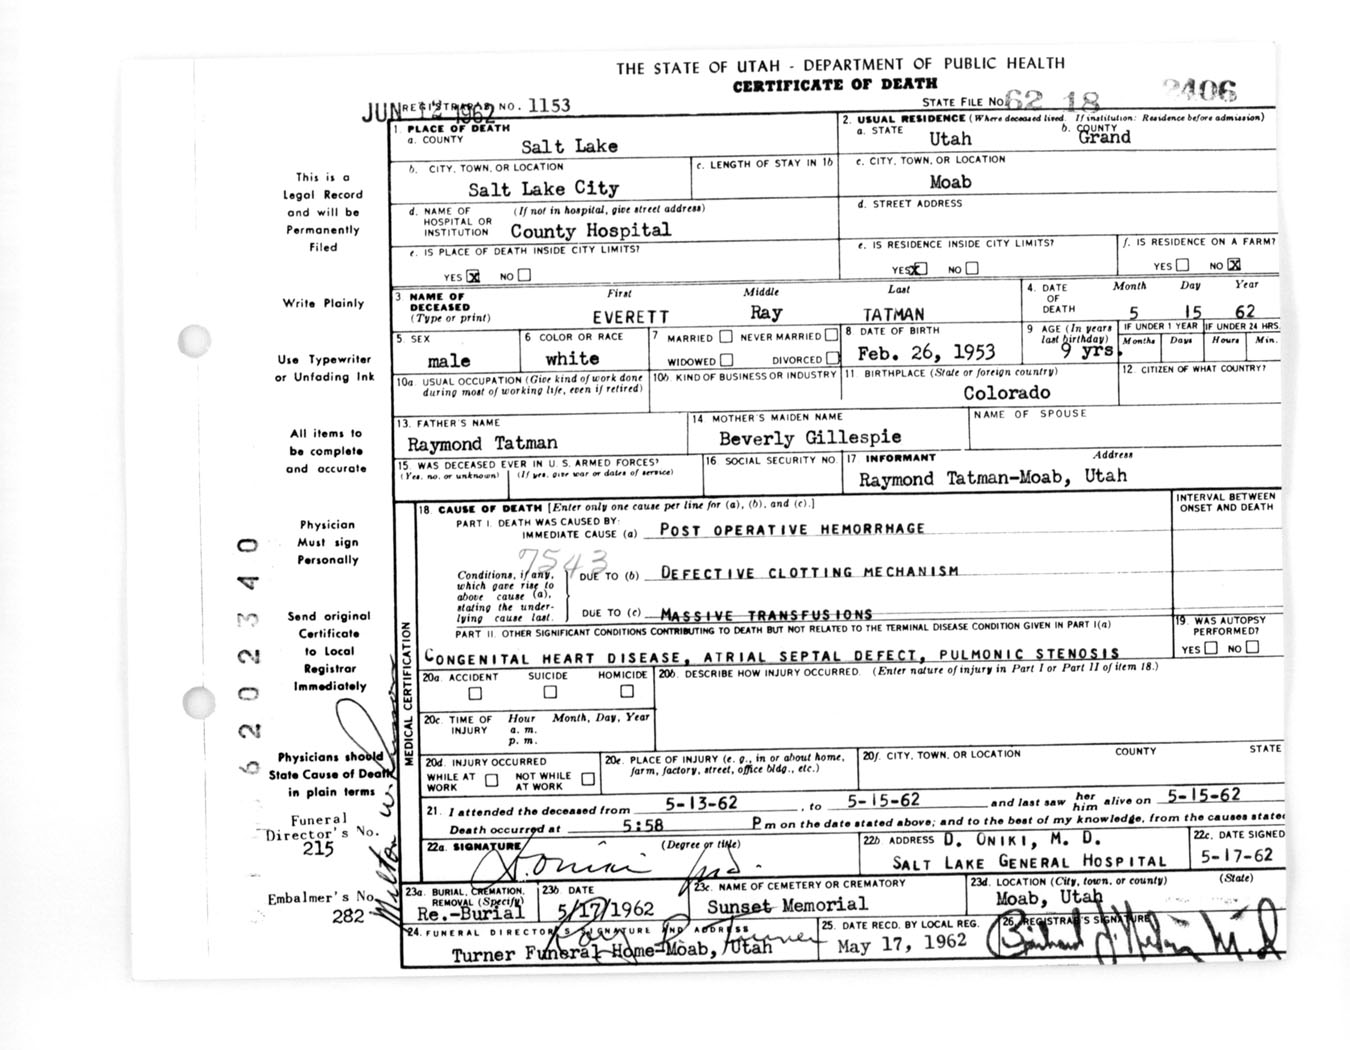 THE STATE OF UTAH - DEPARTMENT OF PUBLIC HEALTH
CERTIFICATE OF DEATH
JUN 12 1962
REGISTRAR'S NO. 1153
STATE FILE NO. 62 18 2406
1. PLACE OF DEATH
a. COUNTY
Salt Lake
2. USUAL RESIDENCE (Where deceased lived. If institution: Residence before admission)
a. STATE Utah b. COUNTY Grand
b. CITY, TOWN, OR LOCATION
Salt Lake City
c. LENGTH OF STAY IN 1b
c. CITY, TOWN, OR LOCATION
Moab
d. NAME OF HOSPITAL OR INSTITUTION (If not in hospital, give street address)
County Hospital
d. STREET ADDRESS
e. IS PLACE OF DEATH INSIDE CITY LIMITS?
YES X NO
e. IS RESIDENCE INSIDE CITY LIMITS?
YES X NO
f. IS RESIDENCE ON A FARM?
YES NO X
3. NAME OF DECEASED (Type or print)
First Middle Last
EVERETT Ray TATMAN
4. DATE OF DEATH
Month Day Year
5 15 62
5. SEX
male
6 COLOR OR RACE
white
7 MARRIED NEVER MARRIED
WIDOWED DIVORCED
8 DATE OF BIRTH
Feb. 26, 1953
9 AGE (In years last birthday)
9 yrs.
IF UNDER 1 YEAR
Months Days
IF UNDER 24 HRS.
Hours Min.
10a. USUAL OCCUPATION (Give kind of work done
during most of working life, even if retired)
10b. KIND OF BUSINESS OR INDUSTRY
11 BIRTHPLACE (State or foreign country)
Colorado
12. CITIZEN OF WHAT COUNTRY?
13. FATHER'S NAME
Raymond Tatman
14 MOTHER'S MAIDEN NAME
Beverly Gillespie
NAME OF SPOUSE
15. WAS DECEASED EVER IN U. S. ARMED FORCES?
(Yes, no, or unknown) (If yes, give war or dates of service)
16 SOCIAL SECURITY NO.
17 INFORMANT Address
Raymond Tatman-Moab, Utah
18. CAUSE OF DEATH [Enter only one cause per line for (a), (b), and (c).]
INTERVAL BETWEEN
ONSET AND DEATH
PART I. DEATH WAS CAUSED BY:
IMMEDIATE CAUSE (a) POST OPERATIVE HEMORRHAGE
7543
Conditions, if any,
which gave rise to
above cause (a),
stating the under-
lying cause last.
DUE TO (b) DEFECTIVE CLOTTING MECHANISM
DUE TO (c) MASSIVE TRANSFUSIONS
PART II. OTHER SIGNIFICANT CONDITIONS CONTRIBUTING TO DEATH BUT NOT RELATED TO THE TERMINAL DISEASE CONDITION GIVEN IN PART I(a)
CONGENITAL HEART DISEASE, ATRIAL SEPTAL DEFECT, PULMONIC STENOSIS
19. WAS AUTOPSY
PERFORMED?
YES NO
MEDICAL CERTIFICATION
20a. ACCIDENT SUICIDE HOMICIDE
20b. DESCRIBE HOW INJURY OCCURRED. (Enter nature of injury in Part I or Part II of item 18.)
20c. TIME OF INJURY Hour Month, Day, Year
a. m.
p. m.
20d. INJURY OCCURRED
WHILE AT WORK NOT WHILE AT WORK
20e. PLACE OF INJURY (e. g., in or about home,
farm, factory, street, office bldg., etc.)
20f. CITY, TOWN, OR LOCATION COUNTY STATE
21. I attended the deceased from 5-13-62, to 5-15-62 and last saw her him alive on 5-15-62
Death occurred at 5:58 P m on the date stated above; and to the best of my knowledge, from the causes stated
22a. SIGNATURE (Degree or title)
22b ADDRESS D. ONIKI, M. D.
SALT LAKE GENERAL HOSPITAL
22c. DATE SIGNED
5-17-62
23a. BURIAL, CREMATION,
REMOVAL (Specify)
Re.-Burial
23b. DATE
5/17/1962
23c. NAME OF CEMETERY OR CREMATORY
Sunset Memorial
23d. LOCATION (City, town, or county) (State)
Moab, Utah
24. FUNERAL DIRECTOR'S SIGNATURE AND ADDRESS
Turner Funeral Home-Moab, Utah
25. DATE RECD. BY LOCAL REG.
May 17, 1962
26. REGISTRAR'S SIGNATURE
This is a
Legal Record
and will be
Permanently
Filed
Write Plainly
Use Typewriter
or Unfading Ink
All items to
be complete
and accurate
Physician
Must sign
Personally
Send original
Certificate
to Local
Registrar
Immediately
Physicians should
State Cause of Death
in plain terms
Funeral
Director's No.
215
Embalmer's No.
282
62023 40